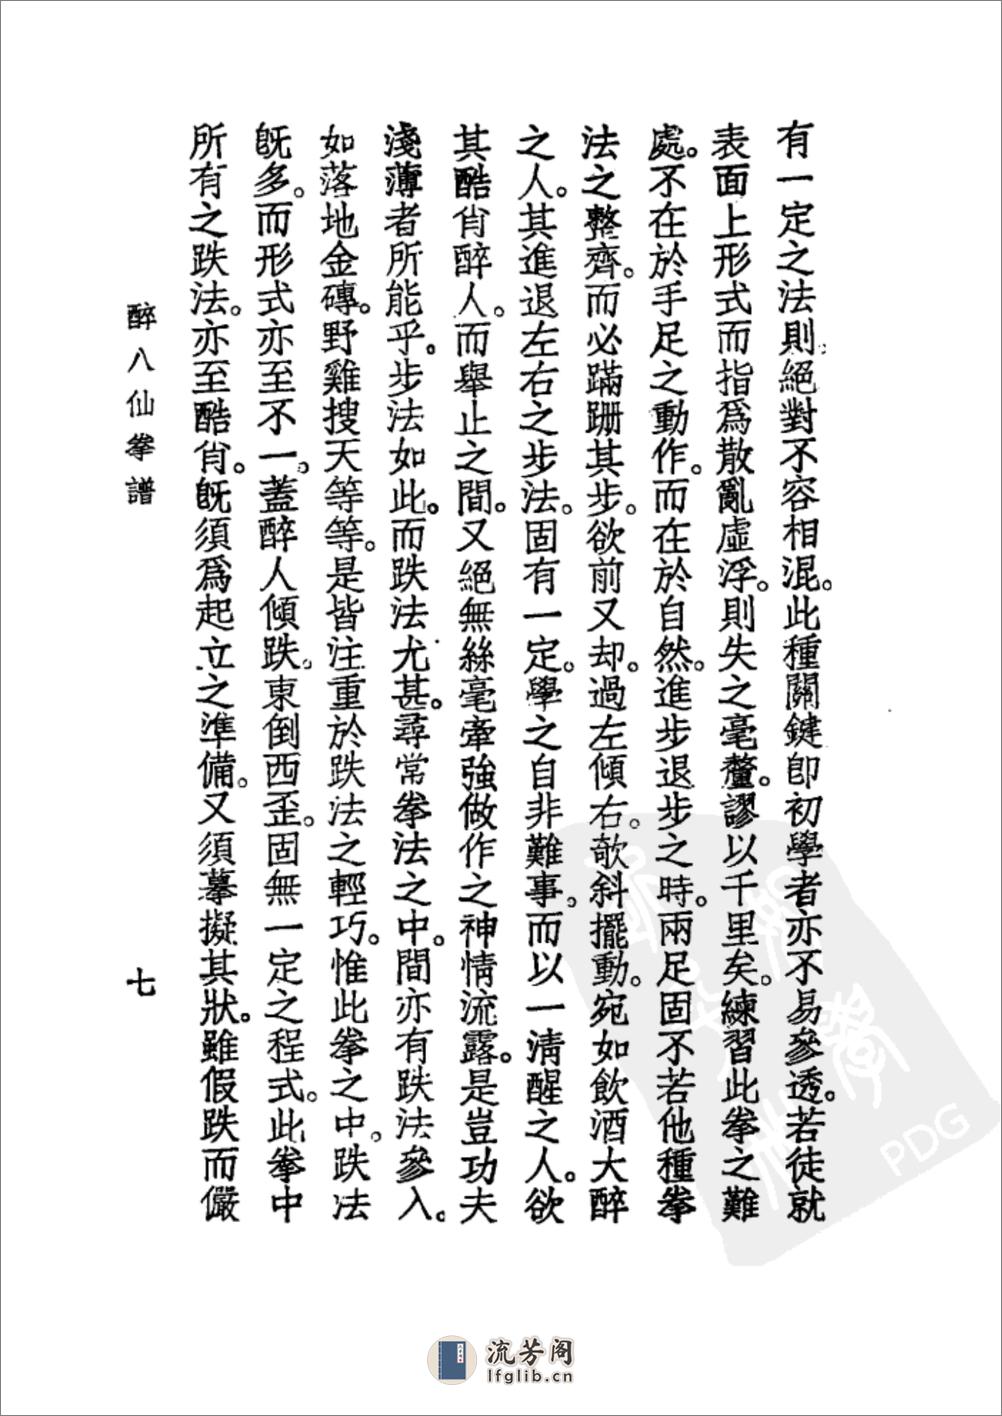 有一定之法則。絕對不容相混。此種關鍵卽初學者亦不易參透。若徒就
表面上形式而指爲散亂虛浮。則失之毫釐。謬以千里矣。練習此拳之難
處。不在於手足之動作。而在於自然。進步退步之時。兩足固不若他種拳
法之整齊。而必蹣跚其步。欲前又却。過左傾右。欹斜擺動。宛如飲酒大醉
之人。其進退左右之步法。固有一定。學之自非難事。而以一淸醒之人。欲
其酷肖醉人。而舉止之間。又絕無絲毫牽強做作之神情流露。是豈功夫
淺薄者所能乎。步法如此。而跌法尤甚。尋常拳法之中。間亦有跌法參入。
如落地金磚。野雞搜天等等。是皆注重於跌法之輕巧。惟此拳之中。跌法
旣多。而形式亦至不一。蓋醉人傾跌。東倒西歪。固無一定之程式。此拳中
所有之跌法。亦至酷肖。旣須爲起立之準備。又須摹擬其狀。雖假跌而儼
醉八仙拳譜
七
PDG
流芳阁
lfglib.cn